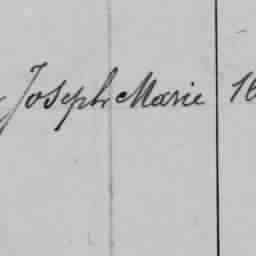 Joseph Marie 16